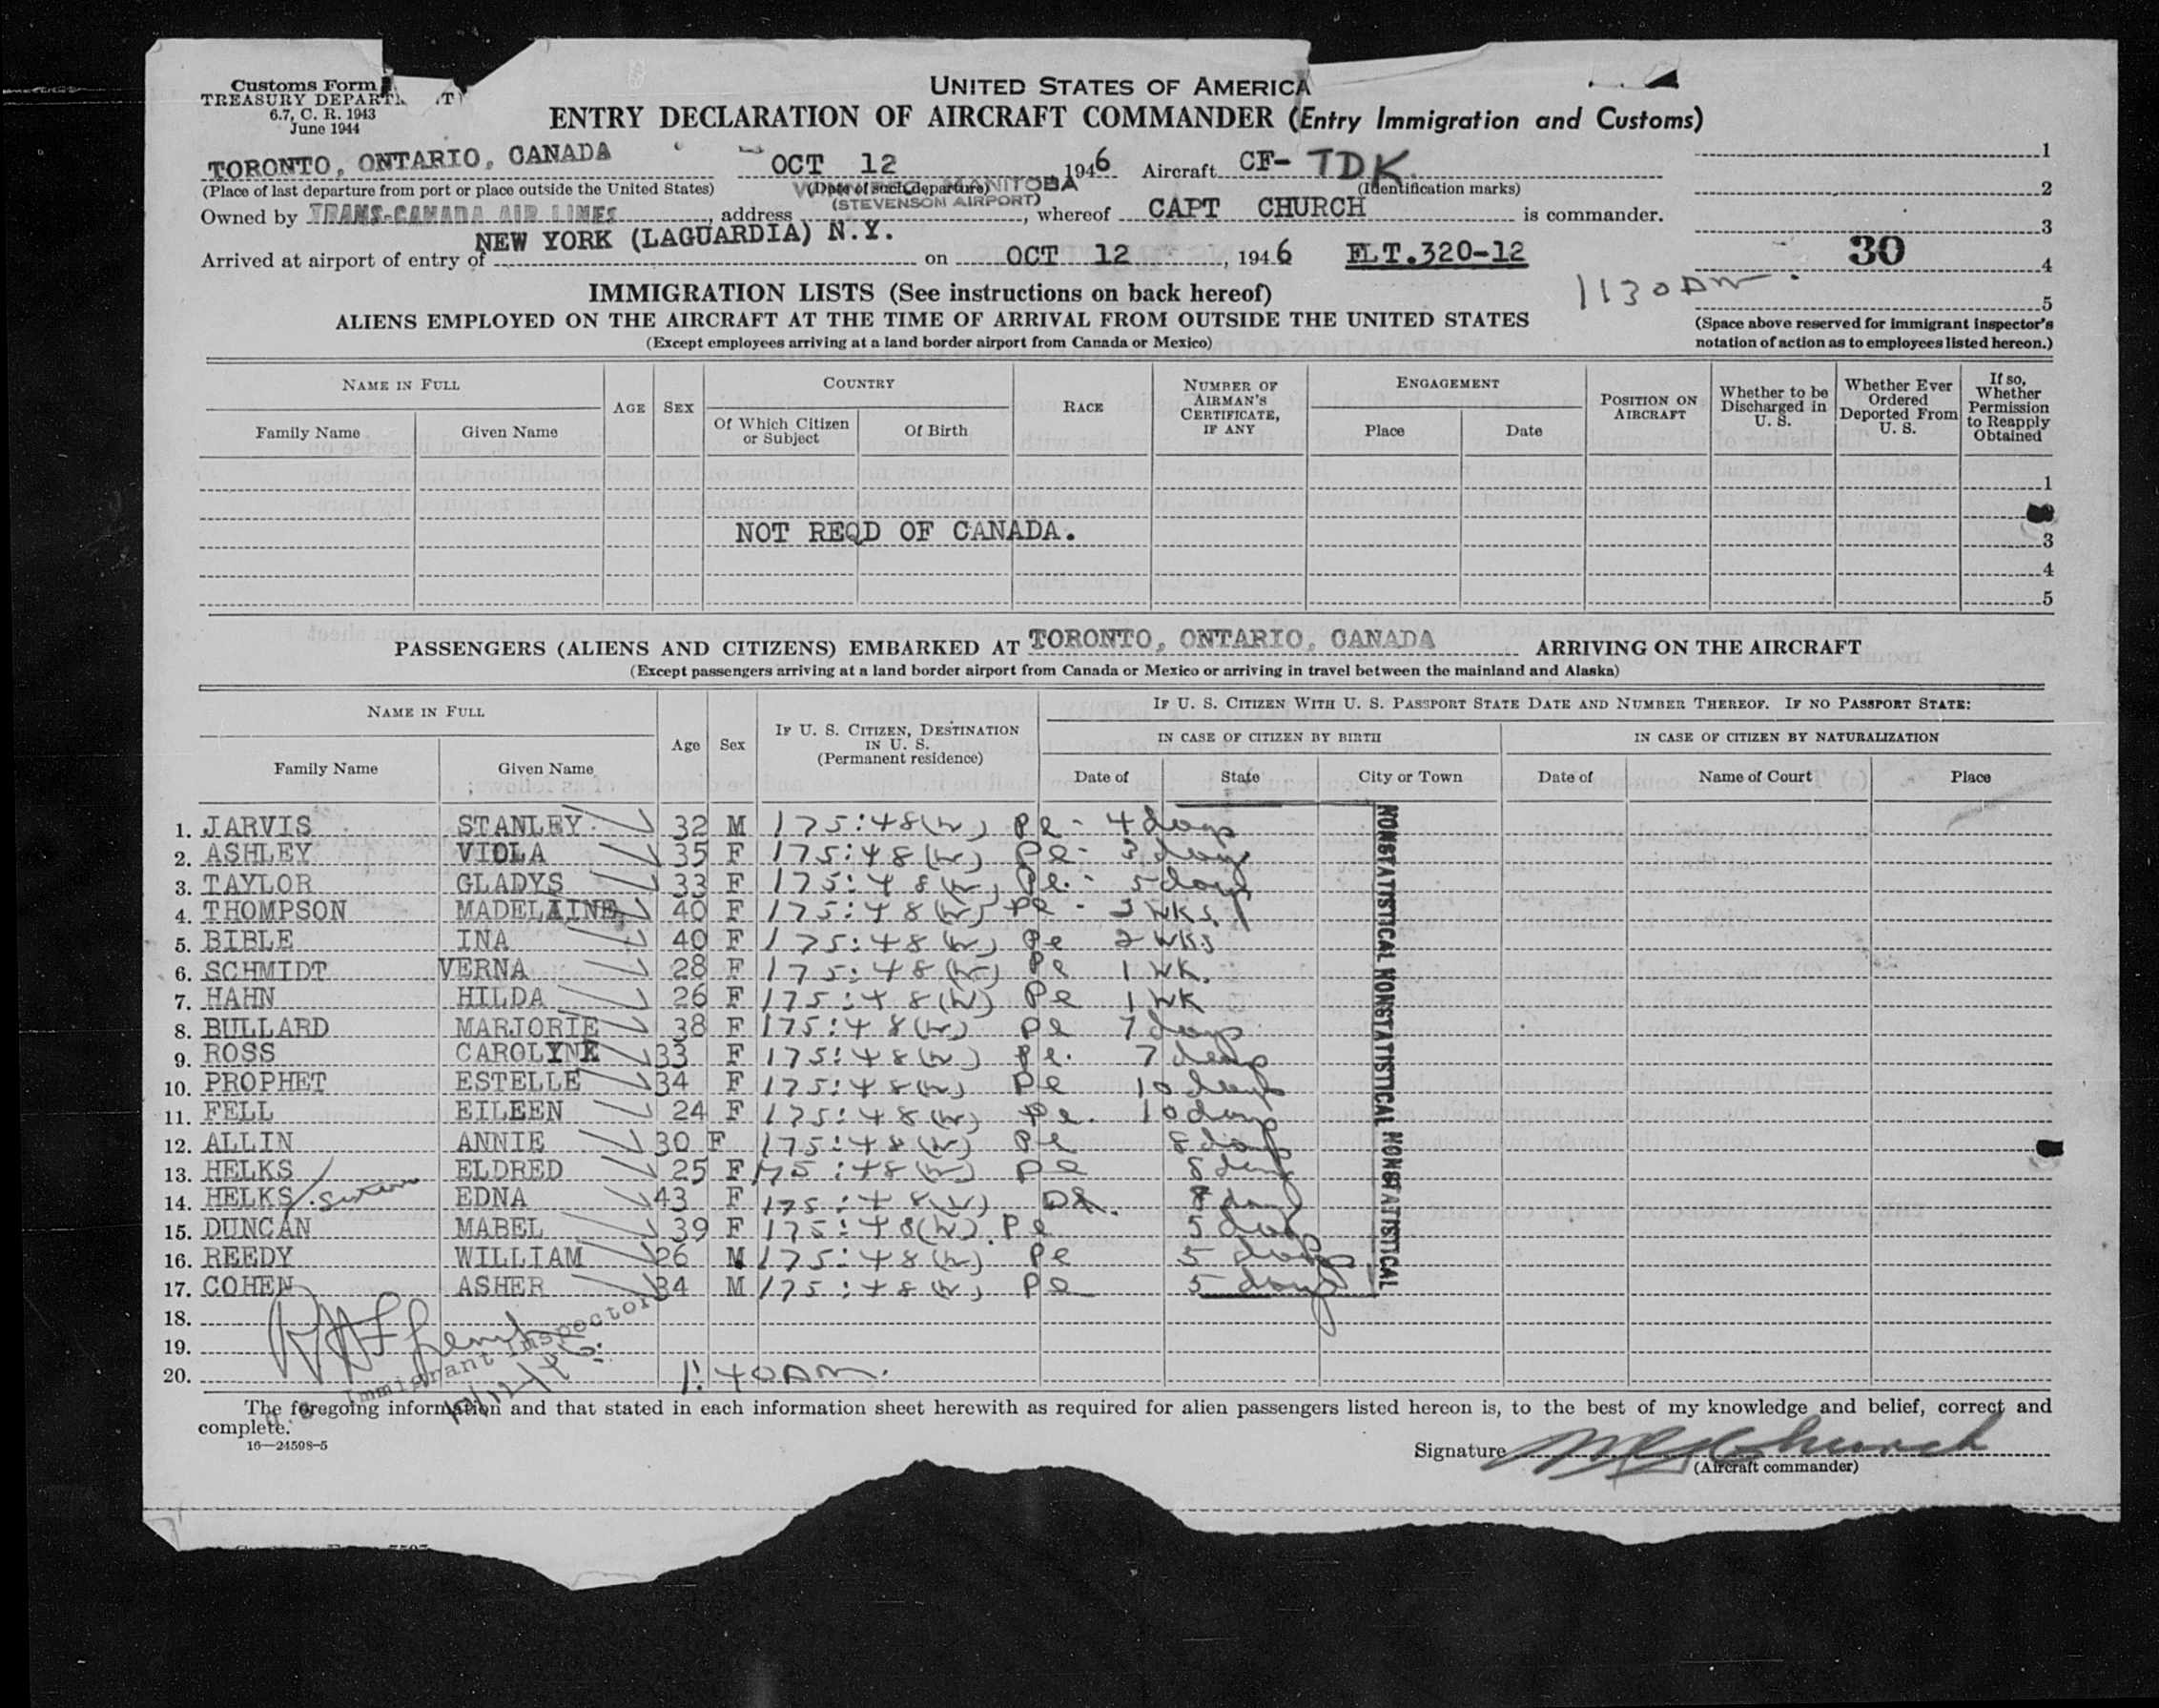 Customs Form
TREASURY DEPART
6.7, C. R. 1943
June 1944
UNITED STATES OF AMERICA
ENTRY DECLARATION OF AIRCRAFT COMMANDER (Entry Immigration and Customs)
TORONTO, ONTARIO, CANADA OCT 12 1946 Aircraft CF-TDK 1
(Place of last departure from port or place outside the United States) (Date of such departure) (Identification marks) 2
MANITOBA
(STEVENSON AIRPORT)
Owned by TRANS-CANADA AIR LINES, address , whereof CAPT CHURCH is commander. 3
Arrived at airport of entry of NEW YORK (LAGUARDIA) N.Y. on OCT 12, 1946 FLT.320-12 30 4
IMMIGRATION LISTS (See instructions on back hereof) 1130 AM 5
ALIENS EMPLOYED ON THE AIRCRAFT AT THE TIME OF ARRIVAL FROM OUTSIDE THE UNITED STATES
(Except employees arriving at a land border airport from Canada or Mexico)
(Space above reserved for immigrant inspector's
notation of action as to employees listed hereon.)
NAME IN FULL AGE SEX COUNTRY RACE NUMBER OF AIRMAN'S CERTIFICATE, IF ANY ENGAGEMENT POSITION ON AIRCRAFT Whether to be Discharged in U. S. Whether Ever Ordered Deported From U. S. If so, Whether Permission to Reapply Obtained
Family Name Given Name Of Which Citizen or Subject Of Birth Place Date
1
NOT REQD OF CANADA.
3
4
5
PASSENGERS (ALIENS AND CITIZENS) EMBARKED AT TORONTO, ONTARIO, CANADA ARRIVING ON THE AIRCRAFT
(Except passengers arriving at a land border airport from Canada or Mexico or arriving in travel between the mainland and Alaska)
NAME IN FULL Age Sex IF U. S. CITIZEN, DESTINATION IN U. S. (Permanent residence) IF U. S. CITIZEN WITH U. S. PASSPORT STATE DATE AND NUMBER THEREOF. IF NO PASSPORT STATE:
IN CASE OF CITIZEN BY BIRTH IN CASE OF CITIZEN BY NATURALIZATION
Family Name Given Name Date of State City or Town Date of Name of Court Place
1. JARVIS STANLEY 32 M 175:48(w) Pe - 4 days
2. ASHLEY VIOLA 35 F 175:48(w) Pe - 3 days
3. TAYLOR GLADYS 33 F 175:48(w) Pe. - 5 days
4. THOMPSON MADELAINE 40 F 175:48(w) Pe - 2 wks.
5. BIBLE INA 40 F 175:48(w) Pe 2 wks
6. SCHMIDT VERNA 28 F 175:48(w) Pe 1 WK.
7. HAHN HILDA 26 F 175:48(w) Pe 1 WK
8. BULLARD MARJORIE 38 F 175:48(w) Pe 7 days
9. ROSS CAROLYNE 33 F 175:48(w) Pe. 7 days
10. PROPHET ESTELLE 34 F 175:48(w) Pe 10 days
11. FELL EILEEN 24 F 175:48(w) Pe. 10 days
12. ALLIN ANNIE 30 F 175:48(w) Pe 8 days
13. HELKS ELDRED 25 F 175:48(w) Pe 8 days
14. HELKS EDNA 43 F 175:48(w) Pe. 8 days
15. DUNCAN MABEL 39 F 175:48(w). Pe 5 days
16. REEDY WILLIAM 26 M 175:48(w) Pe 5 days
17. COHEN ASHER 34 M 175:48(w) Pe 5 days
NONSTATISTICAL NONSTATISTICAL NONSTATISTICAL
18.
19.
20. 1:40 AM.
Immigrant Inspector
10/12/46
The foregoing information and that stated in each information sheet herewith as required for alien passengers listed hereon is, to the best of my knowledge and belief, correct and
complete.
16—24598-5
Signature Church
(Aircraft commander)